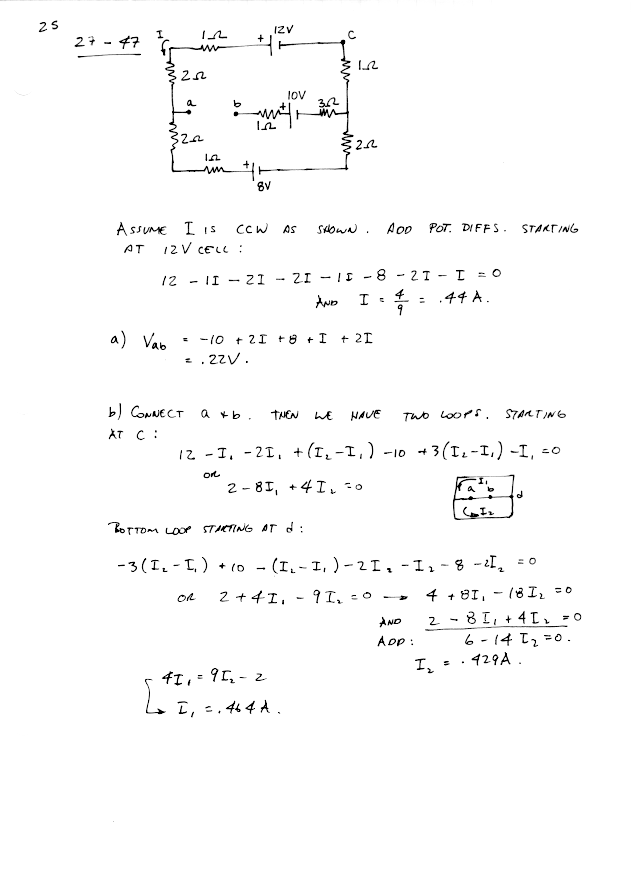 25
27-47
I 1Ω + 12V C
2Ω 1Ω
a b 10V + 3Ω
1Ω
2Ω 2Ω
1Ω +
8V
ASSUME I IS CCW AS SHOWN. ADD POT. DIFFS. STARTING
AT 12V CELL:
12 - 1I - 2I - 2I - 1I - 8 - 2I - I = 0
AND I = 4/9 = .44 A.
a) Vab = -10 + 2I + 8 + I + 2I
= .22V.
b) CONNECT a + b. THEN WE HAVE TWO LOOPS. STARTING
AT C:
12 - I₁ - 2I₁ + (I₂-I₁) - 10 + 3(I₂-I₁) - I₁ = 0
OR
2 - 8I₁ + 4I₂ = 0
a I₁ b d
I₂
BOTTOM LOOP STARTING AT d:
-3(I₂-I₁) + 10 - (I₂-I₁) - 2I₂ - I₂ - 8 - 2I₂ = 0
OR 2 + 4I₁ - 9I₂ = 0 → 4 + 8I₁ - 18I₂ = 0
AND 2 - 8I₁ + 4I₂ = 0
ADD: 6 - 14I₂ = 0.
I₂ = .429A.
4I₁ = 9I₂ - 2
I₁ = .464 A.